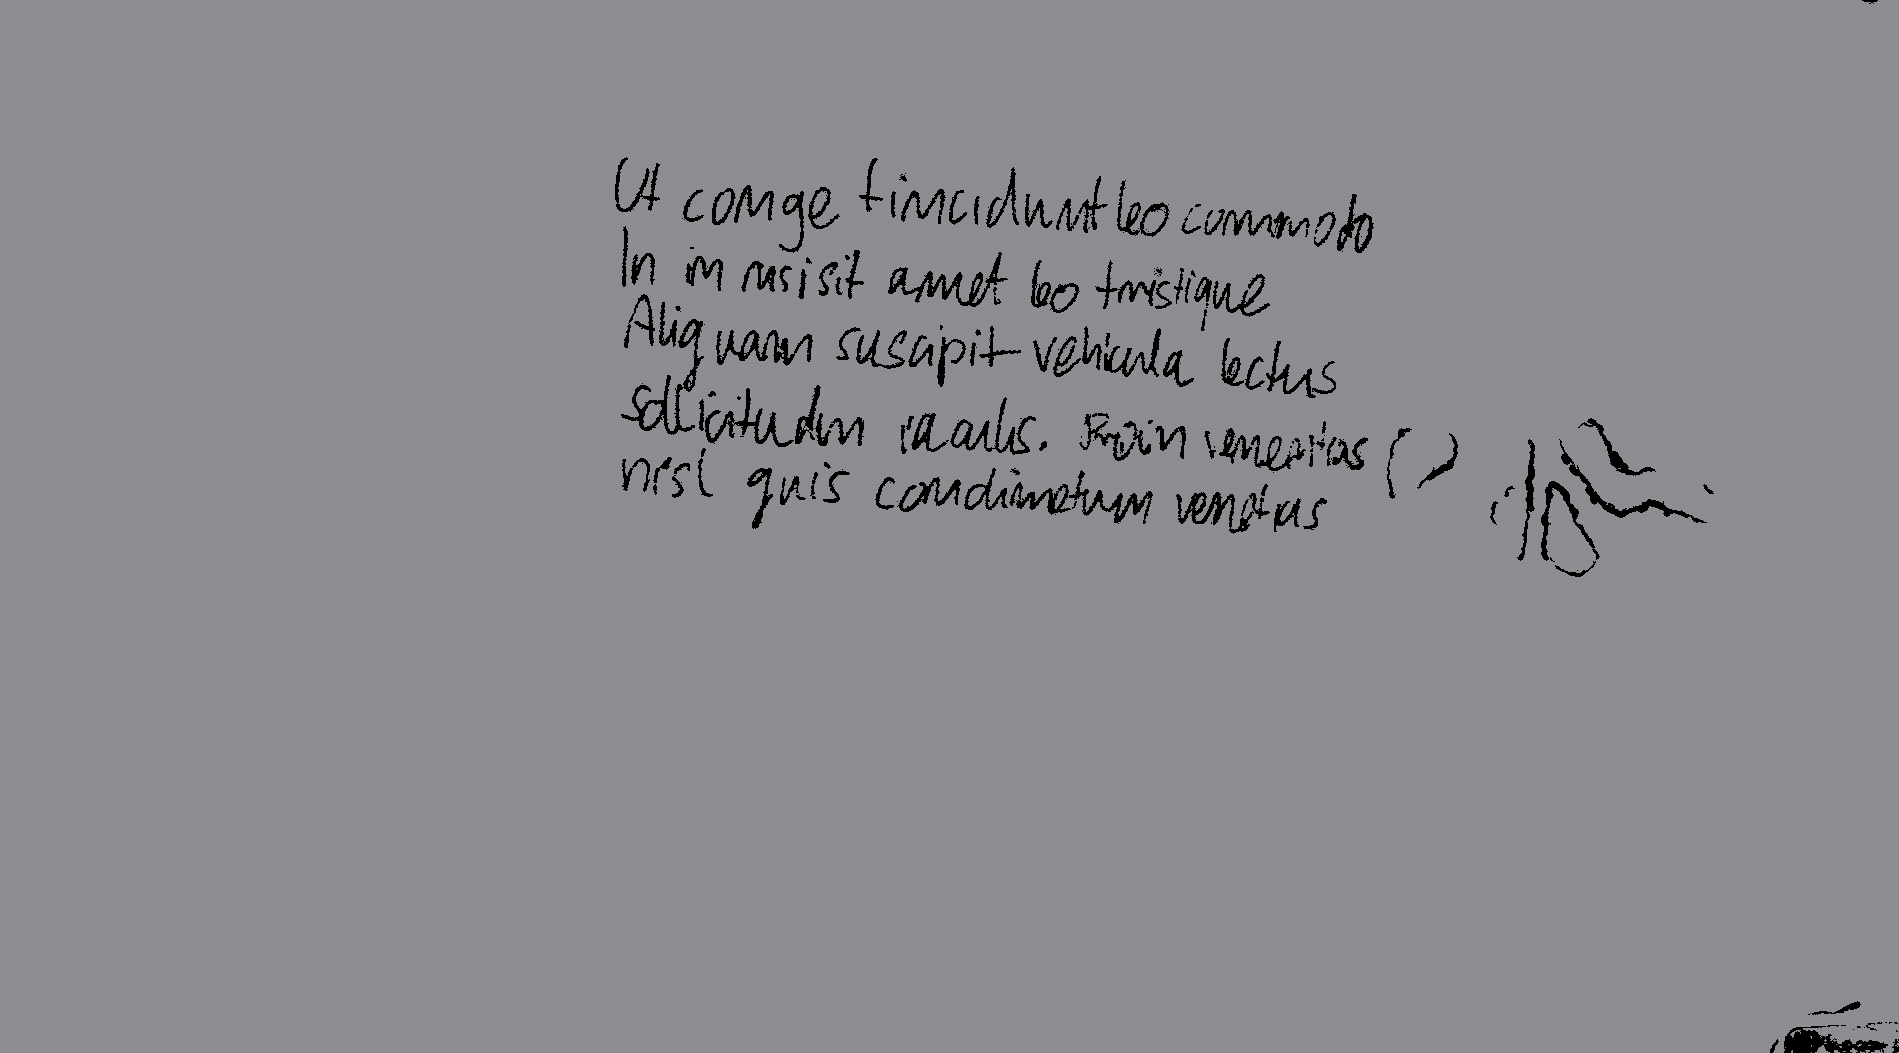 Ut conge tincidunt leo commodo
In in nisi sit amet leo tristique
Aliquam suscipit vehicula lectus
sollicitudin iaculis. Proin venenatis
nisl quis condimetum venetias